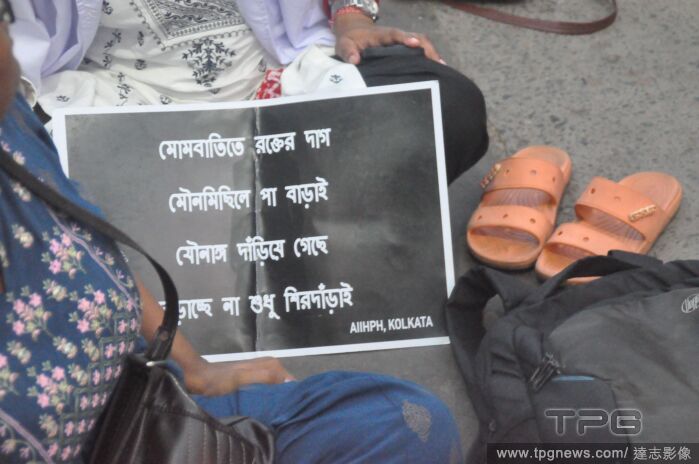 মোমবাতিতে রক্তের দাগ
মৌনমিছিলে পা বাড়াই
যৌনাঙ্গ দাঁড়িয়ে গেছে
না শুধু শিরদাঁড়াই
AIIHPH, KOLKATA
TPG
www.tpgnews.com/ 達志影像